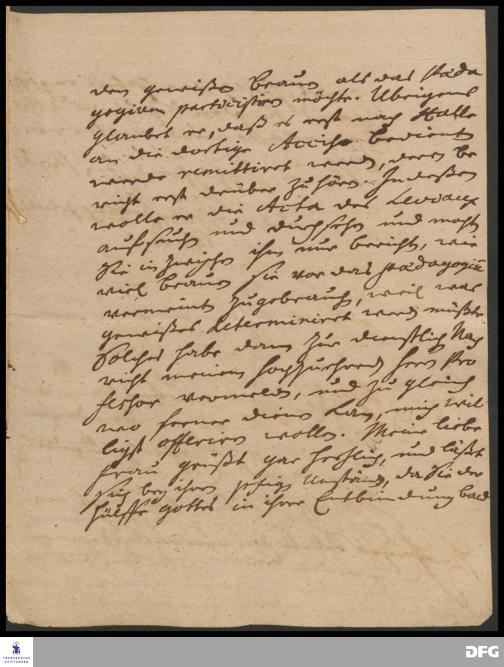 den gewißen brauen als das Päda
gogium participiren möchte. Ubrigens
glaubet er, daß es erst nach Halle
an die dortige Accise bediente
werde remittiret werden, deren be
richt erst drüber zu hören. Indeßen
wolle er die Acta des
aufsuchen und durchsehen und möchten
Sie inzwischen ihm nur berichten, wie
viel brauen Sie vor das Pädagogium
vermeint zu gebrauchen, weil was
gewißes determiniret werden müßte.
Solches habe dann zur dienstlichen Nach
richt meinem hochzuehrenden Herrn Pro
fessor vermelden, und zu gleich
wo ferner dienen kan, mich wil
ligst offeriren wollen. Meine liebe
Frau grüßt gar hertzlich, und läßt
sich bey ihren itzigen Umständen, da Sie der
hülffe Gottes in ihrer Entbindung bald
FRANCKESCHE STIFTUNGEN
DFG